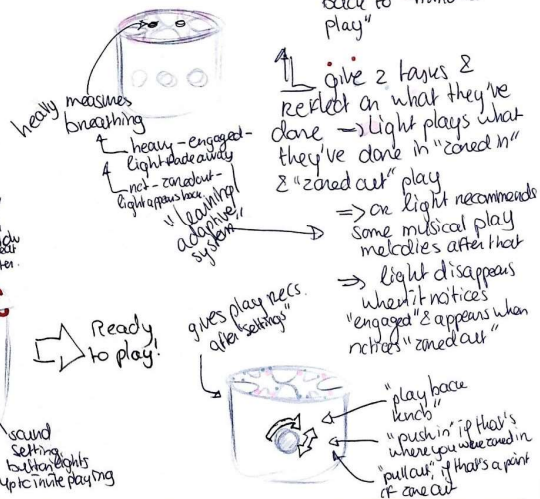 back to
play"
give 2 tasks &
reflect on what they've
done → light plays what
they've done in "zoned in"
& "zoned out" play
⇒ or light recommends
some musical play
melodies after that
⇒ light disappears
when it notices
"engaged" & appears when
notices "zoned out"
measures
breathing
heavy - engaged -
light fade away
not - zoned out -
light appears back.
"learning
adaptive
system"
Ready
to play!
gives play recs.
after "settings"
sound
setting
button lights
up to invite playing
"play back
"push in" if that's
where you were zoned in
"pull out" if that's a point
of zone out